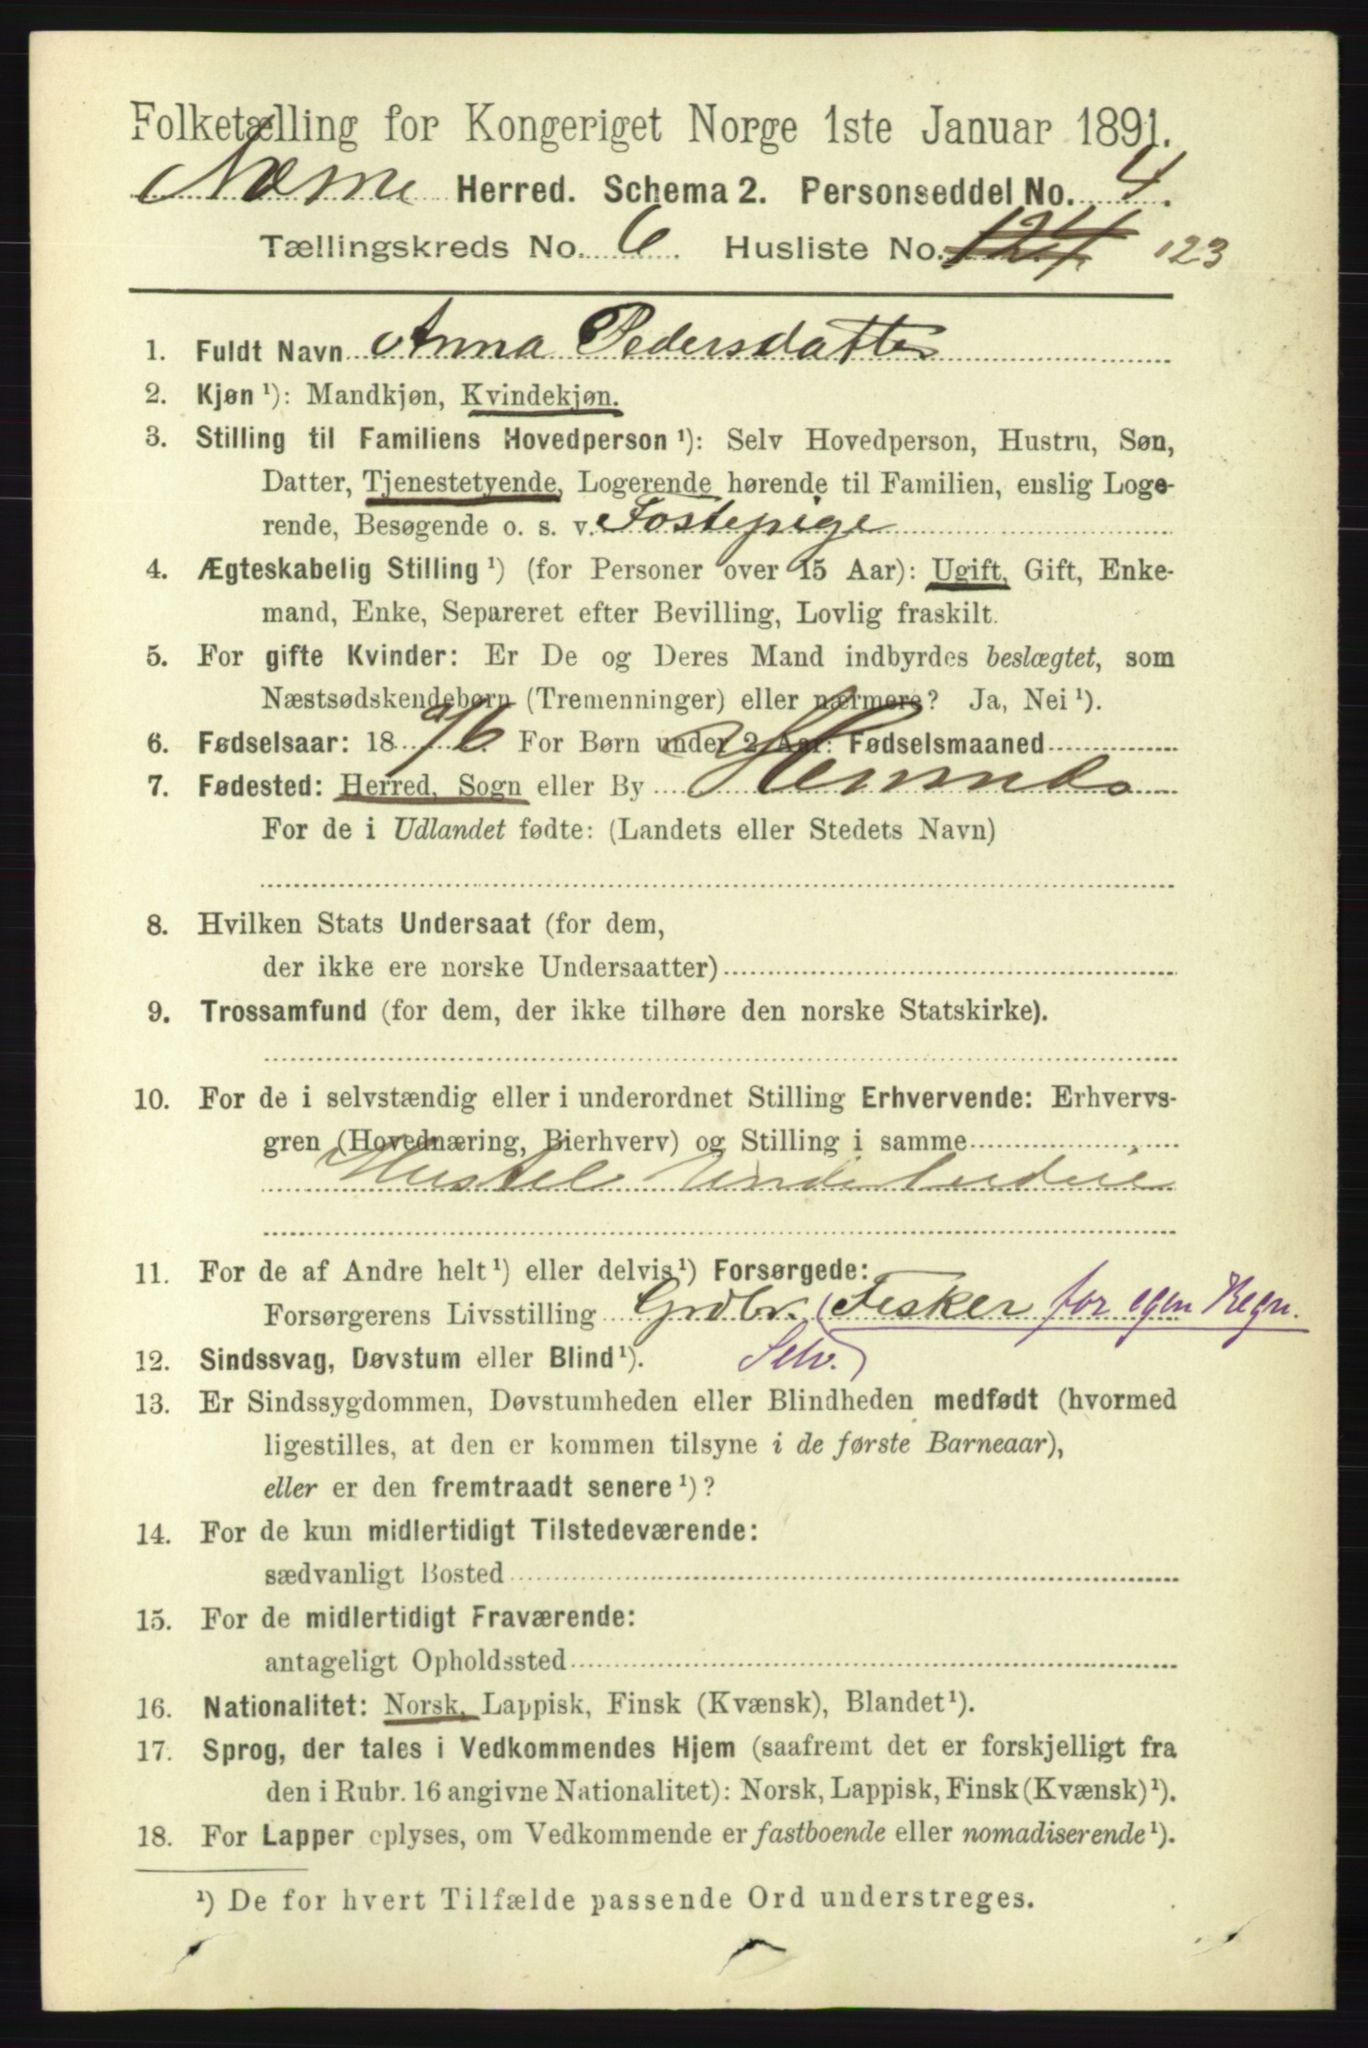 Folketælling for Kongeriget Norge 1ste Januar 1891.
Næsne Herred. Schema 2. Personseddel No. 4.
Tællingskreds No. 6. Husliste No. 124 123
1. Fuldt Navn Anna Pedersdatter
2. Kjøn ¹): Mandkjøn, Kvindekjøn.
3. Stilling til Familiens Hovedperson ¹): Selv Hovedperson, Hustru, Søn,
Datter, Tjenestetyende, Logerende hørende til Familien, enslig Loge-
rende, Besøgende o. s. v. Fostepige
4. Ægteskabelig Stilling ¹) (for Personer over 15 Aar): Ugift, Gift, Enke-
mand, Enke, Separeret efter Bevilling, Lovlig fraskilt.
5. For gifte Kvinder: Er De og Deres Mand indbyrdes beslægtet, som
Næstsødskendebørn (Tremenninger) eller nærmere? Ja, Nei ¹).
6. Fødselsaar: 18 76. For Børn under 2 Aar: Fødselsmaaned
7. Fødested: Herred, Sogn eller By Hemnes
For de i Udlandet fødte: (Landets eller Stedets Navn)
8. Hvilken Stats Undersaat (for dem,
der ikke ere norske Undersaatter)
9. Trossamfund (for dem, der ikke tilhøre den norske Statskirke).
10. For de i selvstændig eller i underordnet Stilling Erhvervende: Erhvervs-
gren (Hovednæring, Bierhverv) og Stilling i samme
11. For de af Andre helt ¹) eller delvis ¹) Forsørgede:
Forsørgerens Livsstilling Grdbr. (Fisker for egen Regn.
12. Sindssvag, Døvstum eller Blind ¹). Selv.)
13. Er Sindssygdommen, Døvstumheden eller Blindheden medfødt (hvormed
ligestilles, at den er kommen tilsyne i de første Barneaar),
eller er den fremtraadt senere ¹)?
14. For de kun midlertidigt Tilstedeværende:
sædvanligt Bosted
15. For de midlertidigt Fraværende:
antageligt Opholdssted
16. Nationalitet: Norsk, Lappisk, Finsk (Kvænsk), Blandet ¹).
17. Sprog, der tales i Vedkommendes Hjem (saafremt det er forskjelligt fra
den i Rubr. 16 angivne Nationalitet): Norsk, Lappisk, Finsk (Kvænsk) ¹).
18. For Lapper oplyses, om Vedkommende er fastboende eller nomadiserende ¹).
¹) De for hvert Tilfælde passende Ord understreges.